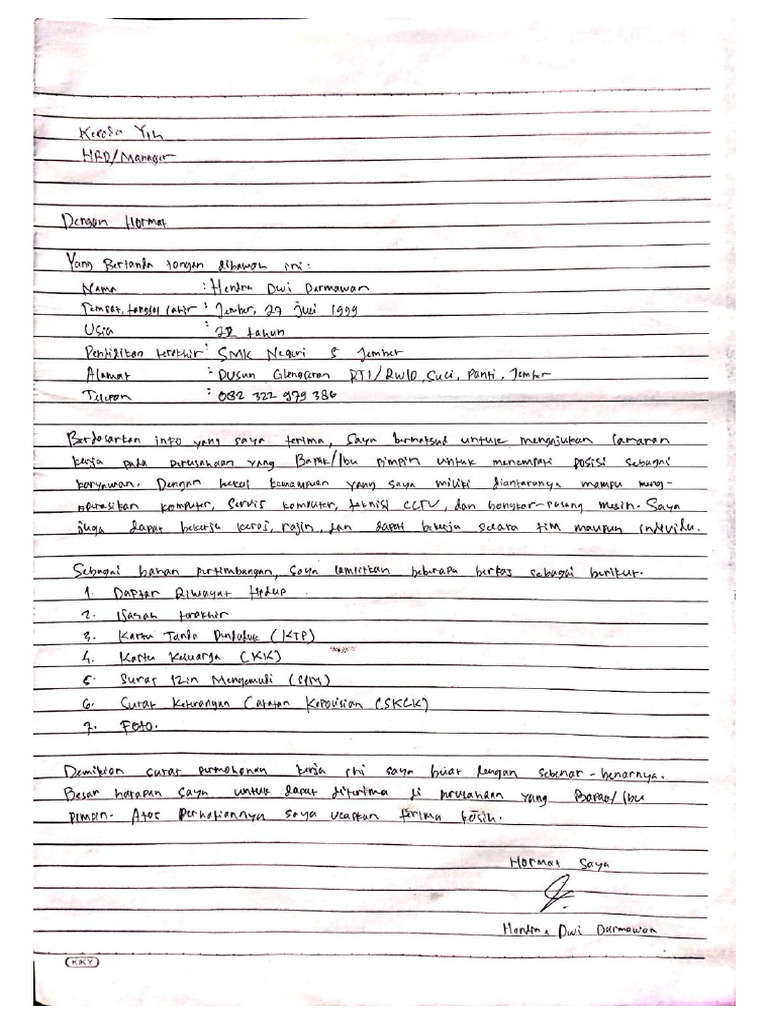 Kepada Yth
HRD/Manager
Dengan Hormat
Yang Bertanda tangan dibawah ini:
Nama : Hendra Dwi Darmawan
Tempat, tanggal lahir : Jember, 29 Juli 1999
Usia : 22 tahun
Pendidikan terakhir : SMK Negeri 5 Jember
Alamat : Dusun Glengseran RT1/RW10, Suci, Panti, Jember
Telepon : 082 322 979 386
Berdasarkan info yang saya terima, Saya bermaksud untuk mengajukan lamaran
kerja pada perusahaan yang Bapak/Ibu pimpin untuk menempati posisi sebagai
karyawan. Dengan bekal kemampuan yang saya miliki diantaranya mampu meng-
operasikan komputer, Servis komputer, teknisi CCTV, dan bongkar-pasang mesin. Saya
juga dapat bekerja keras, rajin, dan dapat bekerja secara tim maupun individu.
Sebagai bahan pertimbangan, saya lampirkan beberapa berkas sebagai berikut.
1. Daftar Riwayat Hidup
2. Ijasah terakhir
3. Kartu Tanda Penduduk (KTP)
4. Kartu Keluarga (KK)
5. Surat Izin Mengemudi (SIM)
6. Surat Keterangan Catatan Kepolisian (SKCK)
7. Foto.
Demikian surat permohonan kerja ini saya buat dengan sebenar-benarnya.
Besar harapan saya untuk dapat diterima di perusahaan yang Bapak/Ibu
pimpin. Atas Perhatiannya saya ucapkan terima kasih.
Hormat Saya
Hendra Dwi Darmawan
KIKY